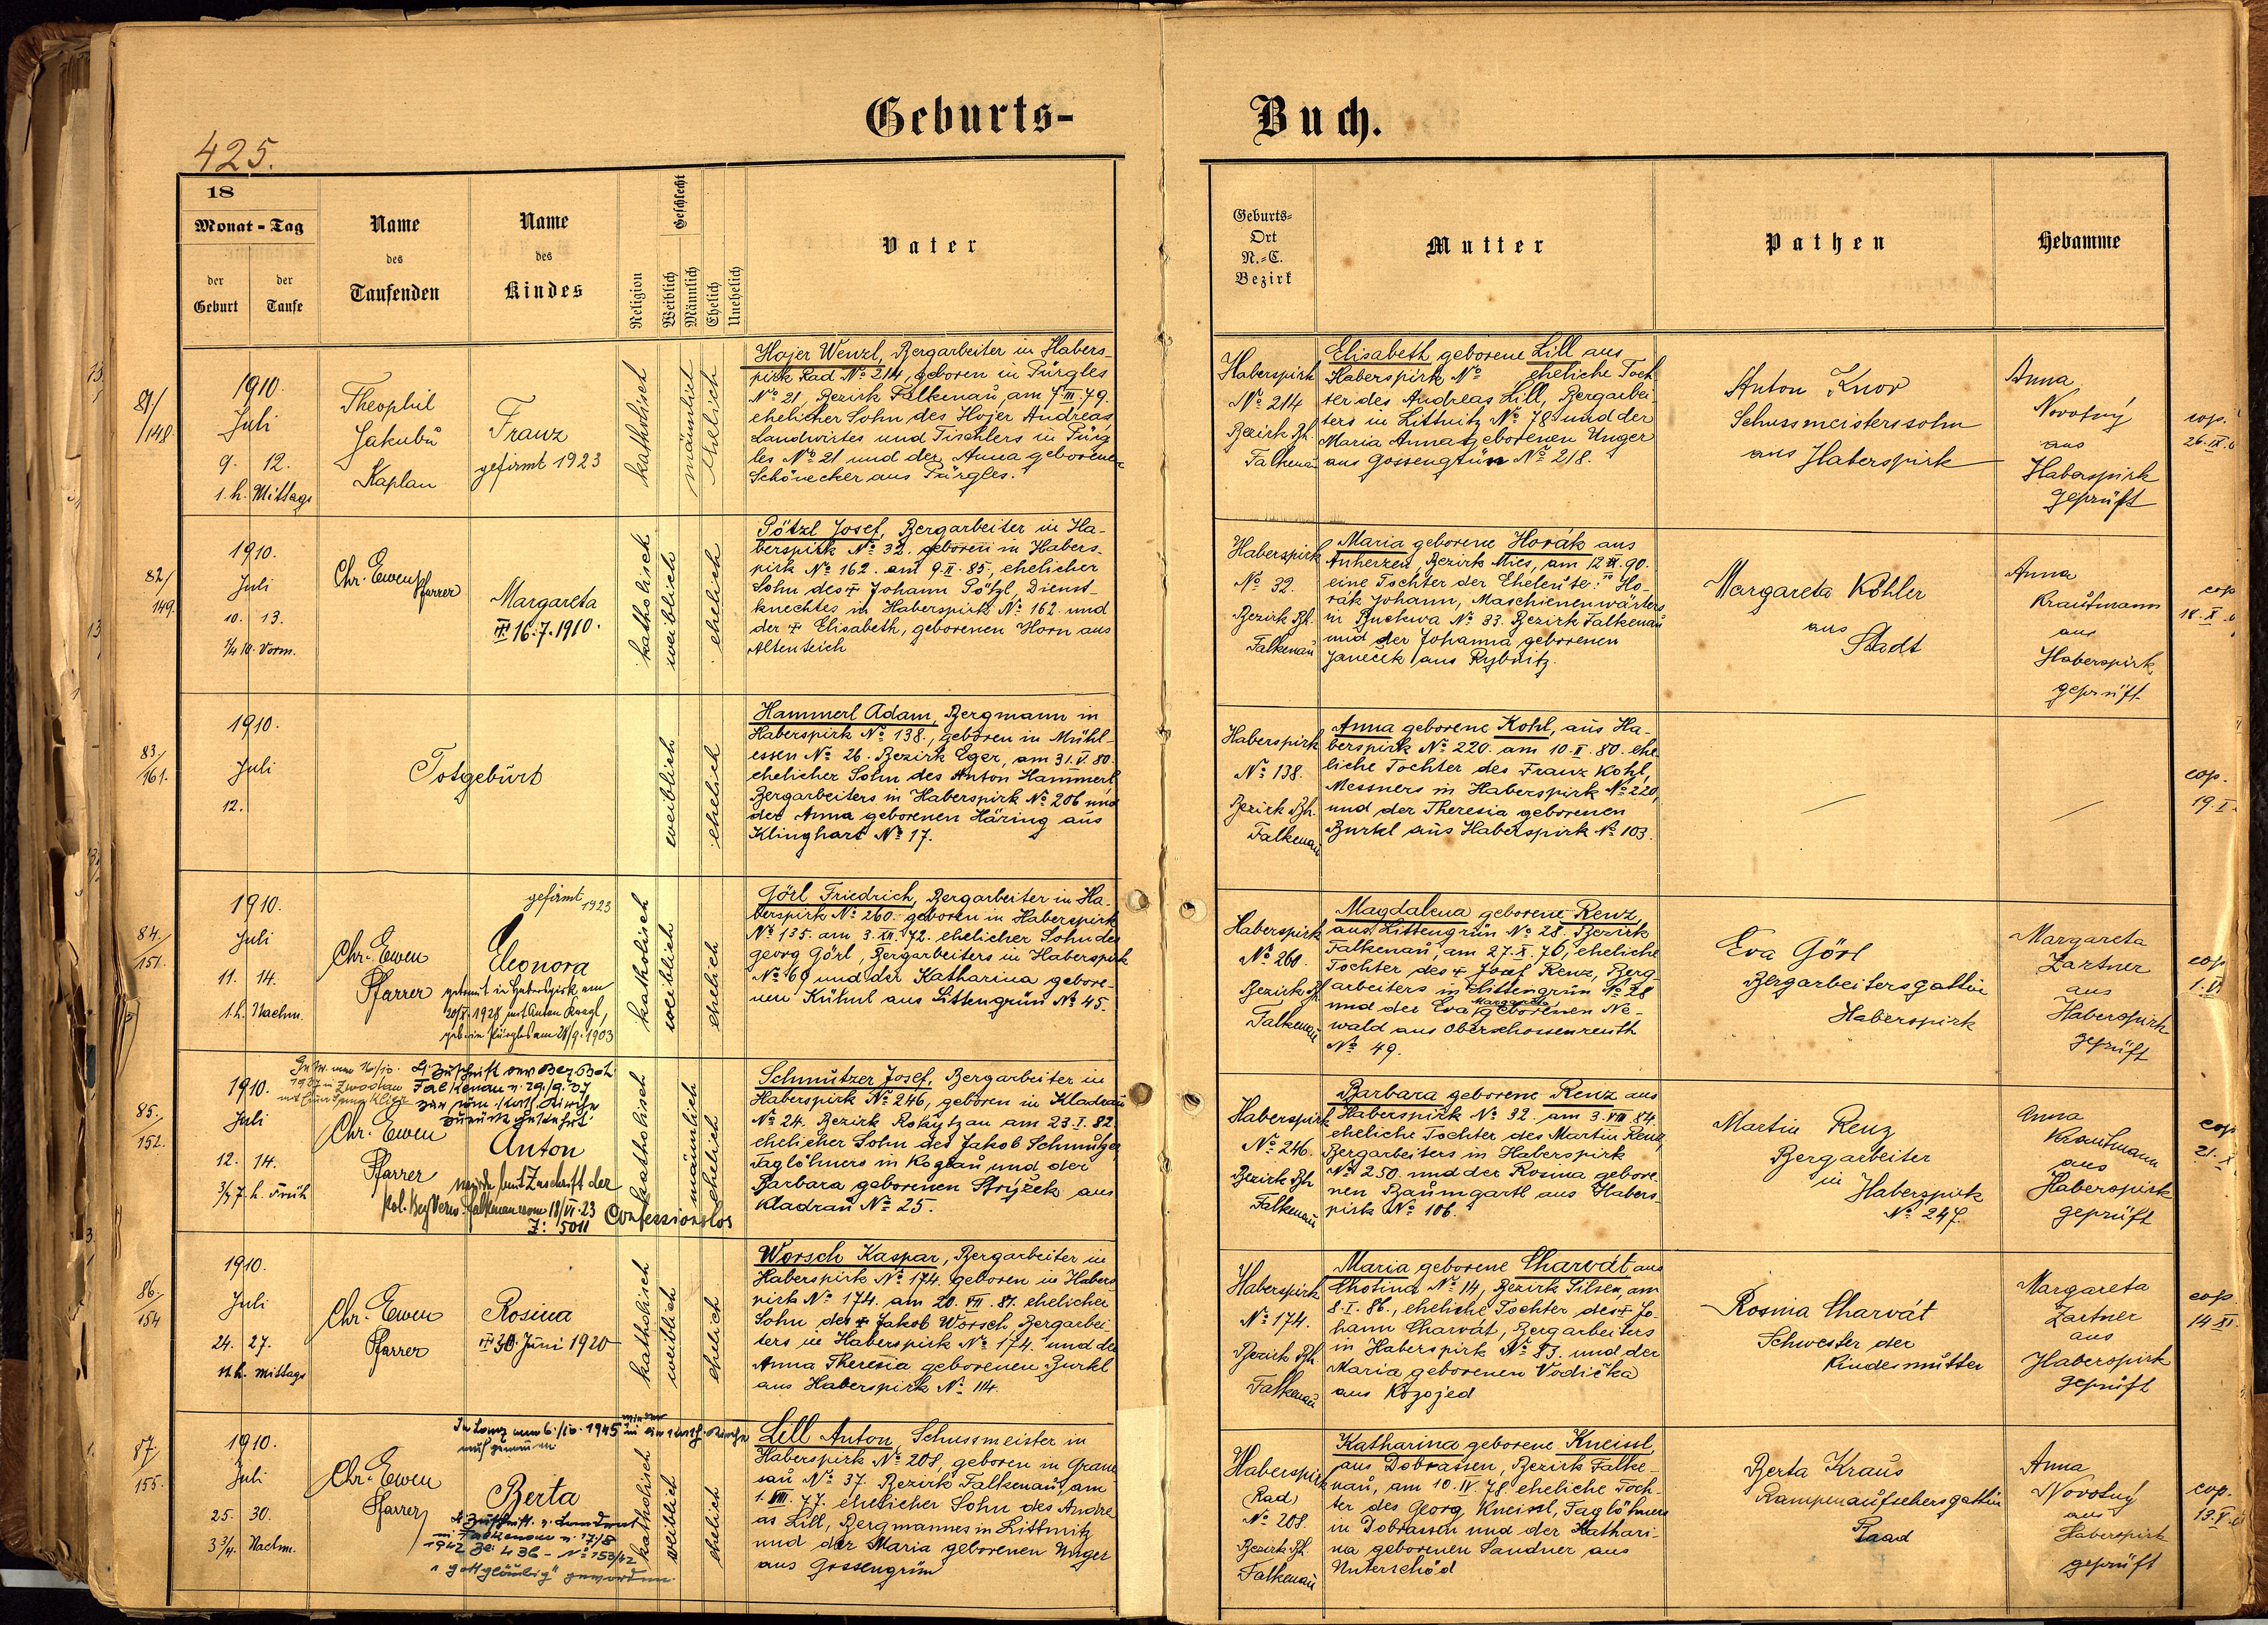 Geburts-
Buch.
425.
18
Monat - Tag
der
Geburt
der
Taufe
Name
des
Taufenden
Name
des
Kindes
Religion
Geschlecht
Weiblich
Männlich
Ehelich
Unehelich
Vater
Geburts-
Ort
N.-C.
Bezirk
Mutter
Pathen
Hebamme
81/
148.
1910.
Juli
9. 12.
1. h. Mittags
Theophil
Jakubů
Kaplan
Franz
gefirmt 1923
katholisch
männlich
ehelich
Hojer Wenzl, Bergarbeiter in Habers-
pirk Rad № 214, geboren in Pürgles
№ 21, Bezirk Falkenau, am 7.III.79.
ehelicher Sohn des Hojer Andreas
Landwirtes und Tischlers in Pürg
les № 21 und der Anna geborenen
Schönecker aus Pürgles.
Haberspirk
№ 214
Bezirk Bh.
Falkenau
Elisabeth geborene Lill aus
Haberspirk № eheliche Toch
ter des Andreas Lill, Bergarbei-
ters in Littnitz № 78 und der
Maria Anna geborenen Unger
aus Gossengrün № 218.
Anton Knor
Schussmeisterssohn
aus Haberspirk
Anna
Novotný
aus
Haberspirk
geprüft
cop.
82/
149.
1910.
Juli
10. 13.
1/4 10. Vorm.
Chr. Ewen
Pfarrer
Margareta
16.7.1910.
katholisch
weiblich
ehelich
Pötzl Josef, Bergarbeiter in Ha-
berspirk № 32. geboren in Habers-
pirk № 162. am 9.II.85, ehelicher
Sohn des + Johann Pötzl, Dienst-
knechtes in Haberspirk № 162. und
der + Elisabeth, geborenen Horn aus
Altenteich
Haberspirk
№ 32.
Bezirk Bh.
Falkenau
Maria geborene Horák aus
Anherzen, Bezirk Mies, am
eine Tochter der Eheleute: Ho-
rák Johann, Maschienenwärters
in Buckwa № 33. Bezirk Falkenau
und der Johanna geborenen
Janeček aus Rybnitz.
Margareta Köhler
aus
Stadt
Anna
Kraufmann
aus
Haberspirk
geprüft
cop
83./
161.
1910.
Juli
12.
Totgeburt
weiblich
ehelich
Hammerl Adam, Bergmann in
Haberspirk № 138., geboren in Mühl-
essen № 26. Bezirk Eger, am 31.V.80.
ehelicher Sohn des Anton Hammerl
Bergarbeiters in Haberspirk № 206 und
der Anna geborenen Häring aus
Klinghart № 17.
Haberspirk
№ 138.
Bezirk Bh.
Falkenau
Anna geborene Kohl, aus Ha-
berspirk № 220. am 10.II.80. ehe
liche Tochter des Franz Kohl,
Messners in Haberspirk № 220,
und der Theresia geborenen
Burkl aus Haberspirk № 103.
cop.
84./
151.
1910.
Juli
11. 14.
1.h. Nachm.
Chr. Ewen
Pfarrer
gefirmt 1923
Eleonora
getraut in Haberspirk am
1928 mit Anton
geb. in Pürgles am 1903
katholisch
weiblich
ehelich
Görl Friedrich, Bergarbeiter in Ha-
berspirk № 260. geboren in Haberspirk
№ 135. am 3.XII.72. ehelicher Sohn des
Georg Görl, Bergarbeiters in Haberspirk
№ 60 und der Katharina gebore-
nen Kühnl aus Littengrün № 45.
Haberspirk
№ 260.
Bezirk Bh
Falkenau
Magdalena geborene Renz,
aus Littengrün № 28. Bezirk
Falkenau, am 27.X.76, eheliche
Tochter des + Josef Renz, Berg-
arbeiters in Littengrün № 28
Margareta
und der Eva geborenen Ne-
wald aus Oberschossenreuth
№ 49.
Eva Görl
Bergarbeitersgattin
Haberspirk
Margareta
Zartner
aus
Haberspirk
geprüft
cop
85./
152.
1910.
Juli
12. 14.
3/4 7. h. Früh
Chr. Ewen
Pfarrer
Lt. Zuschrift der Bez. Beh.
Falkenau v. 29./9. 37
zur röm. kath. Kirche
zurückgekehrt.
Anton
wurde laut Zuschrift der
pol. Bez. Verw. Falkenau vom 18/VI.23
Z: 5011 Confessionslos
katholisch
männlich
ehelich
Schmutzer Josef, Bergarbeiter in
Haberspirk № 246, geboren in Kladrau
№ 24. Bezirk Rokytzan am 23.I.82
ehelicher Sohn des Jakob Schmutzer
Taglöhners in Koglau und der
Barbara geborenen Strýček aus
Kladrau № 25.
Haberspirk
№ 246.
Bezirk Bh
Falkenau
Barbara geborene Renz aus
Haberspirk № 32. am 3.VIII.84.
eheliche Tochter des Martin Renz,
Bergarbeiters in Haberspirk
№ 250. und der Rosina gebore-
nen Baumgartl aus Habers-
pirk № 106.
Martin Renz
Bergarbeiter
in
Haberspirk
№ 247.
Anna
Kraufmann
aus
Haberspirk
geprüft
cop
86./
154
1910.
Juli
24. 27.
11.h. Mittags
Chr. Ewen
Pfarrer
Rosina
30. Juni 1920
katholisch
weiblich
ehelich
Worsch Kaspar, Bergarbeiter in
Haberspirk № 174. geboren in Habers
pirk № 174. am 20.VII.81. ehelicher
Sohn des + Jakob Worsch Bergarbei
ters in Haberspirk № 174. und der
Anna Theresia geborenen Burkl
aus Haberspirk № 114.
Haberspirk
№ 174.
Bezirk Bh.
Falkenau
Maria geborene Charvát aus
Chotina № 14, Bezirk Pilsen, am
8.I.86., eheliche Tochter des + Jo-
hann Charvát, Bergarbeiters
in Haberspirk № 83. und der
Maria geborenen Vodička
aus Kozojed
Rosina Charvát
Schwester der
Kindesmutter
Margareta
Zartner
aus
Haberspirk
geprüft
cop
14 XI.
87./
155.
1910.
Juli
25. 30.
3 3/4. Nachm.
Chr. Ewen
Pfarrer
1945 wieder in die kath. Kirche
aufgenommen
Berta
Lt. Zuschrift d. Landrat
in Falkenau v. 17/8
1942 Zl: 436 - № 153/42
"gottgläubig" geworden.
katholisch
weiblich
ehelich
Lill Anton, Schussmeister in
Haberspirk № 208, geboren in Grane
sau № 37. Bezirk Falkenau, am
1.VIII.77. ehelicher Sohn des Andre
as Lill, Bergmannes in Littmitz
und der Maria geborenen Unger
aus Gossengrün
Haberspirk
(Rad)
№ 208.
Bezirk Bh.
Falkenau
Katharina geborene Kneissl,
aus Dobrassen, Bezirk Falke-
nau, am 10.IV.78 eheliche Toch-
ter des Georg Kneissl, Taglöhners
in Dobrassen und der Kathari-
na geborenen Sandner aus
Unterschöd
Berta Kraus
Rampenaufsehersgattin
Raad
Anna
Novotný
aus
Haberspirk
geprüft
cop.